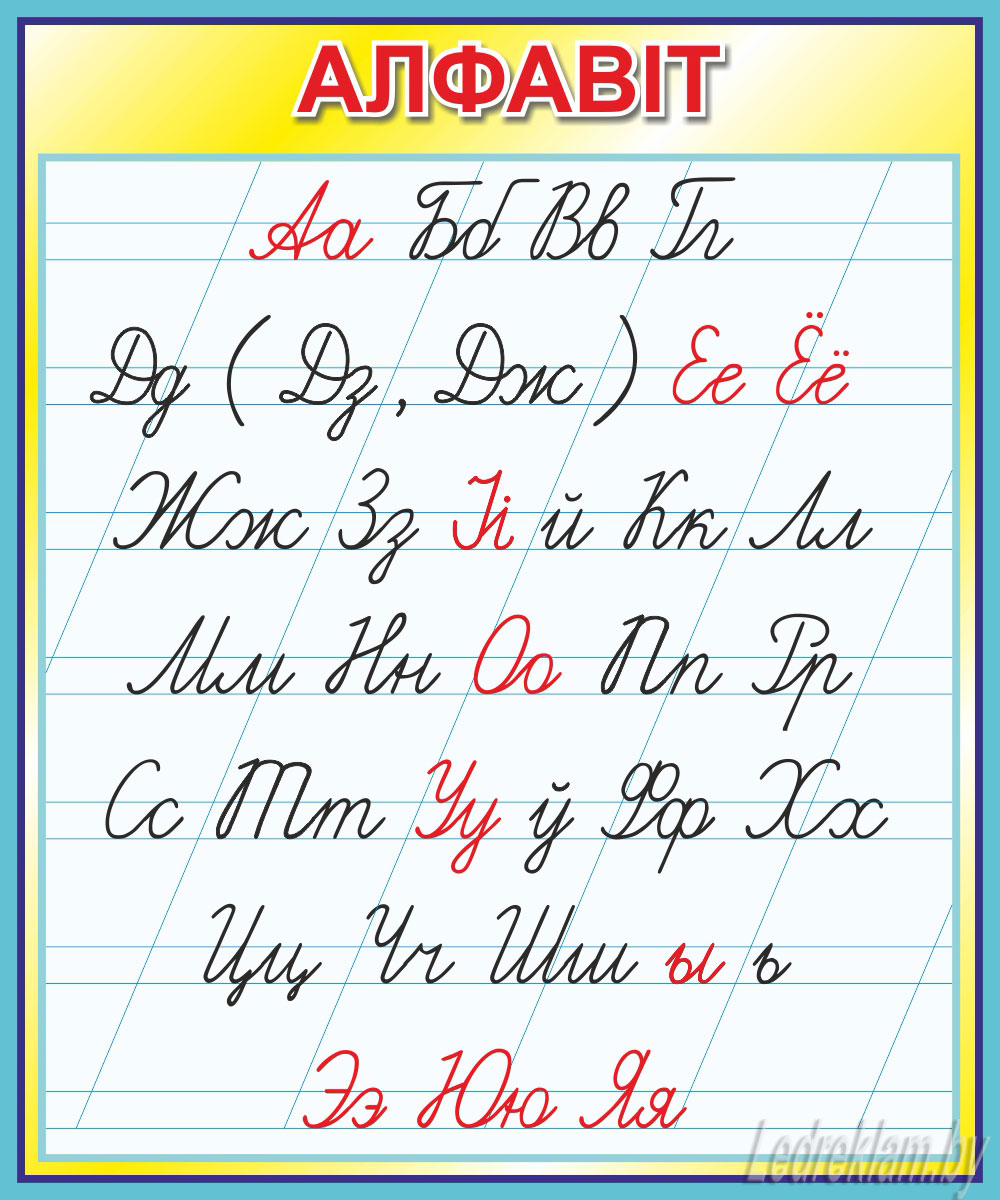 АЛФАВІТ
Аа Бб Вв Гг
Дд ( Дз , Дж ) Ее Ёё
Жж Зз Іі й Кк Лл
Мм Нн Оо Пп Рр
Сс Тт Уу ў Фф Хх
Цц Чч Шш ы ь
Ээ Юю Яя
Ledreklam.by